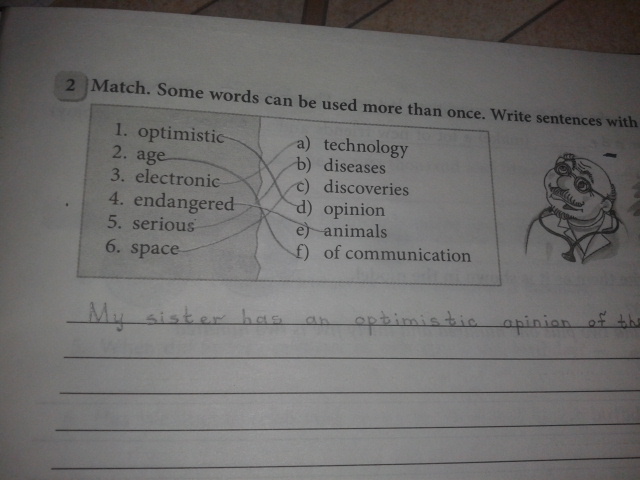 2 Match. Some words can be used more than once. Write sentences with
1. optimistic
2. age
3. electronic
4. endangered
5. serious
6. space
a) technology
b) diseases
c) discoveries
d) opinion
e) animals
f) of communication
My sister has an optimistic opinion of the